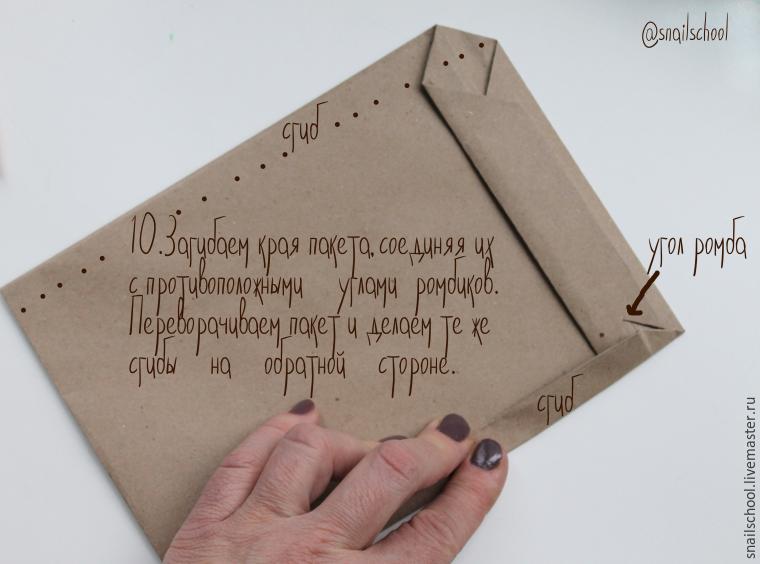 @snailschool
сгиб
10.Загибаем края пакета, соединяя их
с противоположными углами ромбиков.
Переворачиваем пакет и делаем те же
сгибы на обратной стороне.
угол ромба
сгиб
snailschool.livemaster.ru